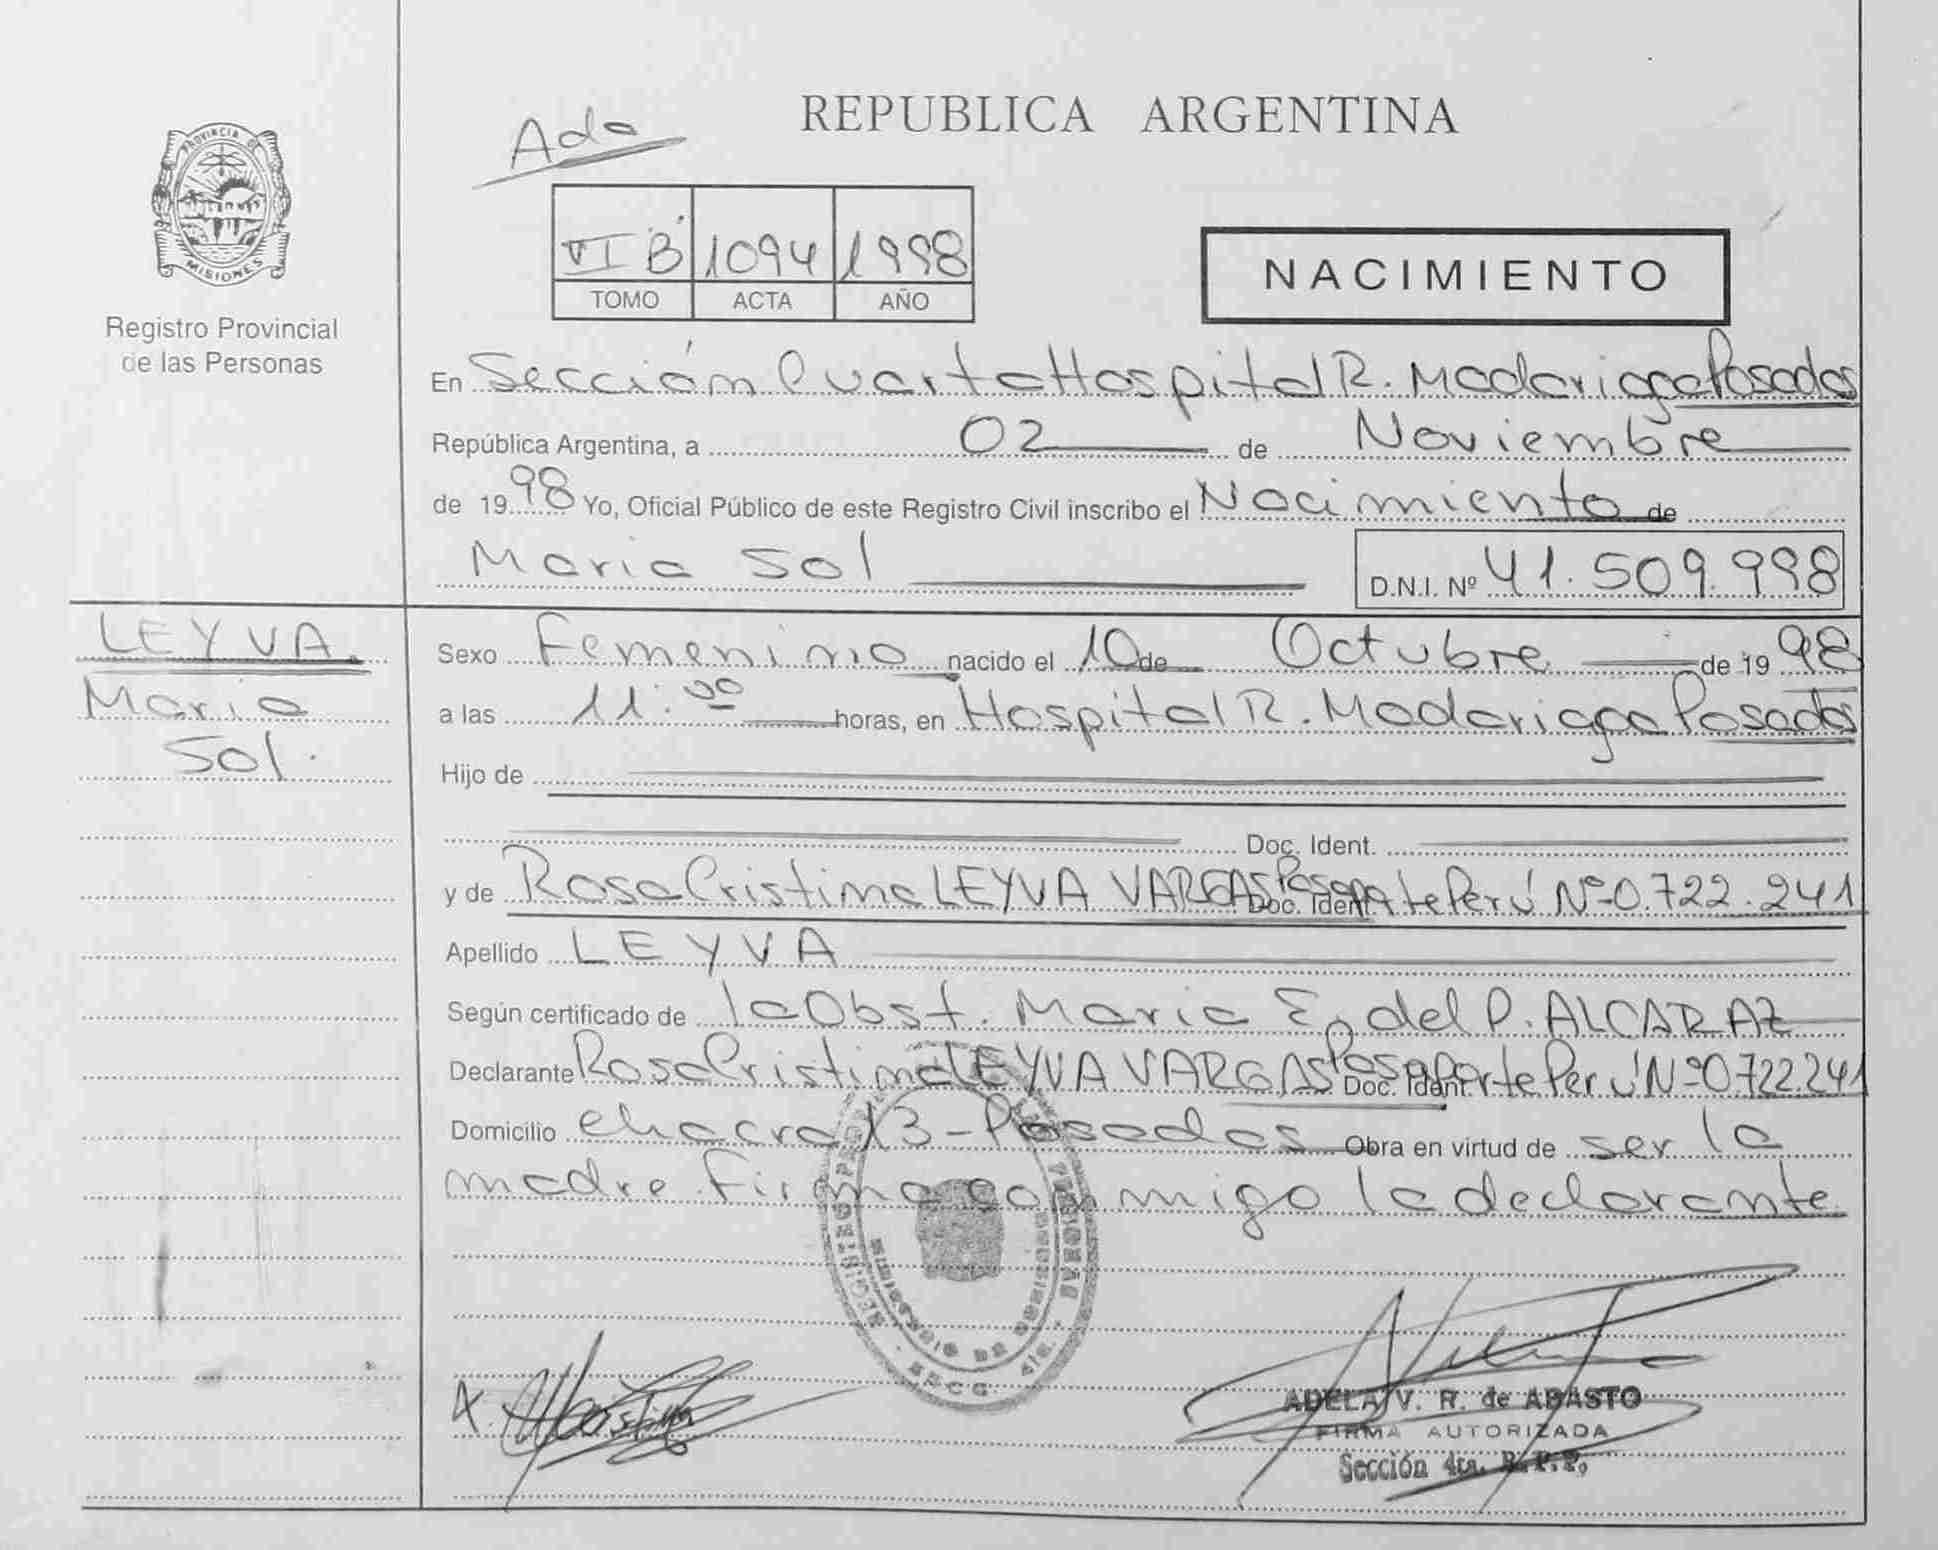 REPUBLICA ARGENTINA
Ada
PROVINCIA DE
MISIONES
Registro Provincial
de las Personas
VI B 1094 1998
TOMO ACTA AÑO
NACIMIENTO
En Sección Cuarta Hospital R. Madariaga Posadas
República Argentina, a 02 de Noviembre
de 1998 Yo, Oficial Público de este Registro Civil inscribo el Nacimiento de
Maria Sol D.N.I. Nº 41.509.998
LEYVA.
Maria
Sol.
Sexo Femenino nacido el 10 de Octubre de 1998
a las 11:00 horas, en Hospital R. Madariaga Posadas
Hijo de
Doc. Ident.
y de Rosa Cristina LEYVA VARGAS Doc. Ident. Pasaporte Perú Nº 0.722.241
Apellido LEYVA
Según certificado de la Obst. Maria E. del P. ALCARAZ
Declarante Rosa Cristina LEYVA VARGAS Doc. Ident. Pasaporte Perú Nº 0.722.241
Domicilio chacra 13 - Posadas Obra en virtud de ser la
madre. Firma conmigo la declarante.
MINISTERIO DE GOBIERNO
ADELA V. R. de ABASTO
FIRMA AUTORIZADA
Sección 4ta. R.P.P.